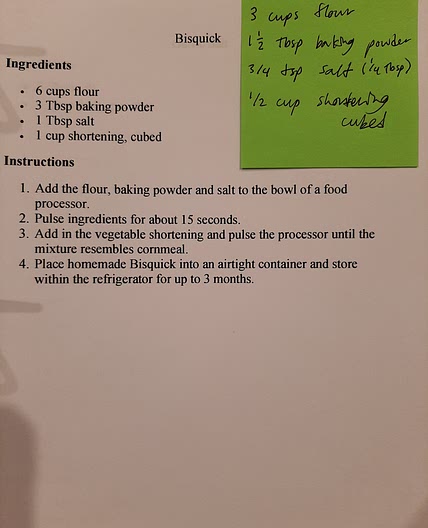 Bisquick
Ingredients
• 6 cups flour
• 3 Tbsp baking powder
• 1 Tbsp salt
• 1 cup shortening, cubed
Instructions
1. Add the flour, baking powder and salt to the bowl of a food
processor.
2. Pulse ingredients for about 15 seconds.
3. Add in the vegetable shortening and pulse the processor until the
mixture resembles cornmeal.
4. Place homemade Bisquick into an airtight container and store
within the refrigerator for up to 3 months.
3 cups flour
1 1/2 Tbsp baking powder
3/4 tsp salt (1/4 Tbsp)
1/2 cup shortening
cubed